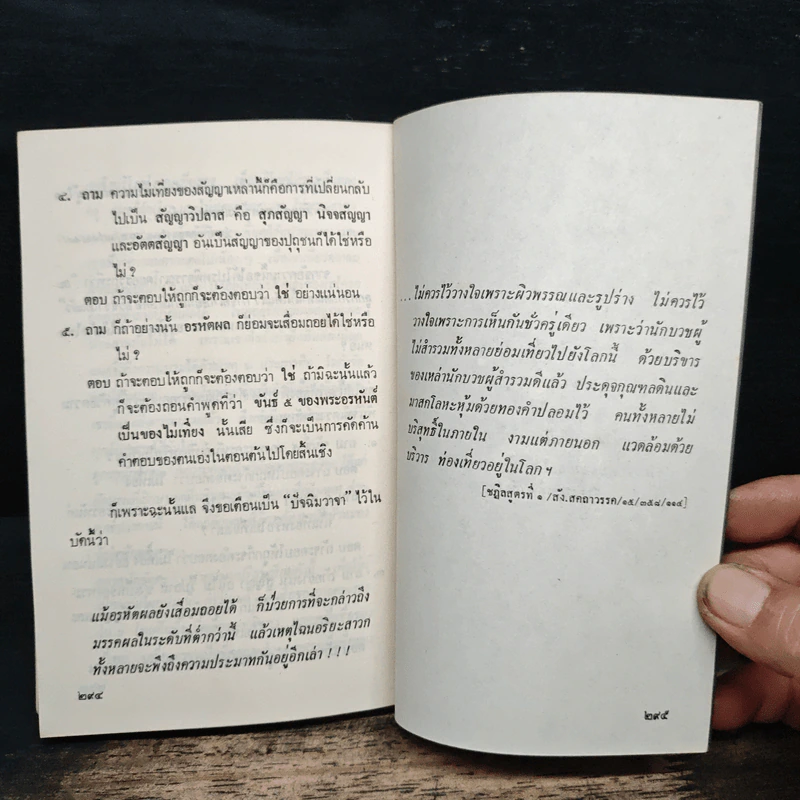 ๔. ถาม ความไม่เที่ยงของสัญญาเหล่านี้ก็คือการที่เปลี่ยนกลับ
ไปเป็น สัญญาวิปลาส คือ สุภสัญญา นิจจสัญญา
และอัตตสัญญา อันเป็นสัญญาของปุถุชนก็ได้ใช่หรือ
ไม่ ?
ตอบ ถ้าจะตอบให้ถูกก็จะต้องตอบว่า ใช่ อย่างแน่นอน
๕. ถาม ก็ถ้าอย่างนั้น อรหัตผล ก็ย่อมจะเสื่อมถอยได้ใช่หรือ
ไม่ ?
ตอบ ถ้าจะตอบให้ถูกก็จะต้องตอบว่า ใช่ ถ้ามิฉะนั้นแล้ว
ก็จะต้องถอนคำพูดที่ว่า ขันธ์ ๕ ของพระอรหันต์
เป็นของไม่เที่ยง นั้นเสีย ซึ่งก็จะเป็นการคัดค้าน
คำตอบของตนเองในตอนต้นไปโดยสิ้นเชิง
ก็เพราะฉะนั้นแล จึงขอเตือนเป็น “ปัจฉิมวาจา” ไว้ใน
บัดนี้ว่า
แม้อรหัตผลยังเสื่อมถอยได้ ก็ป่วยการที่จะกล่าวถึง
มรรคผลในระดับที่ต่ำกว่านี้ แล้วเหตุไฉนอริยะสาวก
ทั้งหลายจะพึงถึงความประมาทกันอยู่อีกเล่า ! ! !
๒๙๔
...ไม่ควรไว้วางใจเพราะผิวพรรณและรูปร่าง ไม่ควรไว้
วางใจเพราะการเห็นกันชั่วครู่เดียว เพราะว่านักบวชผู้
ไม่สำรวมทั้งหลายย่อมเที่ยวไปยังโลกนี้ ด้วยบริขาร
ของเหล่านักบวชผู้สำรวมดีแล้ว ประดุจกุณฑลดินและ
มาสกโลหะหุ้มด้วยทองคำปลอมไว้ คนทั้งหลายไม่
บริสุทธิ์ในภายใน งามแต่ภายนอก แวดล้อมด้วย
บริวาร ท่องเที่ยวอยู่ในโลก ฯ
[ชฎิลสูตรที่ ๑ /สัง.สคาถวรรค/๑๕/๓๕๘/๑๑๔]
๒๙๕